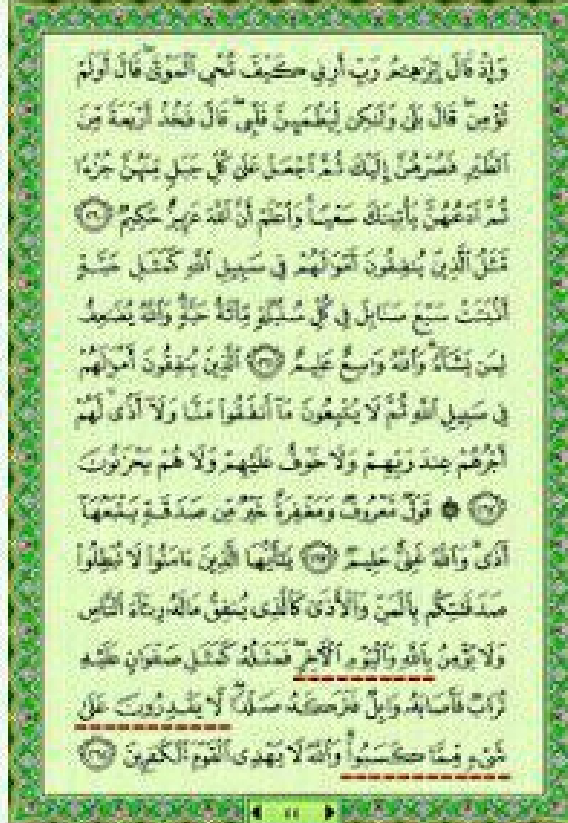 وَإِذْ قَالَ إِبْرَٰهِـۧمُ رَبِّ أَرِنِى كَيْفَ تُحْىِ ٱلْمَوْتَىٰ ۖ قَالَ أَوَلَمْ
تُؤْمِن ۖ قَالَ بَلَىٰ وَلَـٰكِن لِّيَطْمَئِنَّ قَلْبِى ۖ قَالَ فَخُذْ أَرْبَعَةً مِّنَ
ٱلطَّيْرِ فَصُرْهُنَّ إِلَيْكَ ثُمَّ ٱجْعَلْ عَلَىٰ كُلِّ جَبَلٍ مِّنْهُنَّ جُزْءًا
ثُمَّ ٱدْعُهُنَّ يَأْتِينَكَ سَعْيًا ۚ وَٱعْلَمْ أَنَّ ٱللَّهَ عَزِيزٌ حَكِيمٌ ٢٦٠
مَّثَلُ ٱلَّذِينَ يُنفِقُونَ أَمْوَٰلَهُمْ فِى سَبِيلِ ٱللَّهِ كَمَثَلِ حَبَّةٍ
أَنۢبَتَتْ سَبْعَ سَنَابِلَ فِى كُلِّ سُنۢبُلَةٍ مِّا۟ئَةُ حَبَّةٍ ۗ وَٱللَّهُ يُضَـٰعِفُ
لِمَن يَشَآءُ ۗ وَٱللَّهُ وَٰسِعٌ عَلِيمٌ ٢٦١ ٱلَّذِينَ يُنفِقُونَ أَمْوَٰلَهُمْ
فِى سَبِيلِ ٱللَّهِ ثُمَّ لَا يُتْبِعُونَ مَآ أَنفَقُوا۟ مَنًّا وَلَآ أَذًى ۙ لَّهُمْ
أَجْرُهُمْ عِندَ رَبِّهِمْ وَلَا خَوْفٌ عَلَيْهِمْ وَلَا هُمْ يَحْزَنُونَ
٢٦٢ ۞ قَوْلٌ مَّعْرُوفٌ وَمَغْفِرَةٌ خَيْرٌ مِّن صَدَقَةٍ يَتْبَعُهَآ
أَذًى ۗ وَٱللَّهُ غَنِىٌّ حَلِيمٌ ٢٦٣ يَـٰٓأَيُّهَا ٱلَّذِينَ ءَامَنُوا۟ لَا تُبْطِلُوا۟
صَدَقَـٰتِكُم بِٱلْمَنِّ وَٱلْأَذَىٰ كَٱلَّذِى يُنفِقُ مَالَهُۥ رِئَآءَ ٱلنَّاسِ
وَلَا يُؤْمِنُ بِٱللَّهِ وَٱلْيَوْمِ ٱلْـَٔاخِرِ ۖ فَمَثَلُهُۥ كَمَثَلِ صَفْوَانٍ عَلَيْهِ
تُرَابٌ فَأَصَابَهُۥ وَابِلٌ فَتَرَكَهُۥ صَلْدًا ۖ لَّا يَقْدِرُونَ عَلَىٰ
شَىْءٍ مِّمَّا كَسَبُوا۟ ۗ وَٱللَّهُ لَا يَهْدِى ٱلْقَوْمَ ٱلْكَـٰفِرِينَ ٢٦٤
٤٤